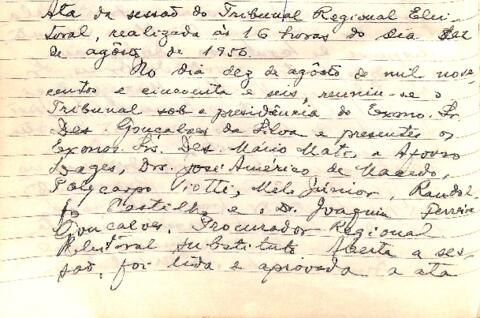 Ata da sessão do Tribunal Regional Elei-
toral, realizada às 16 horas do dia dez
de agôsto de 1956.
No dia dez de agôsto de mil nove
centos e cincoenta e seis, reuniu-se o
Tribunal sob a presidência do Exmo. Sr.
Des. Gonçalves da Silva e presentes os
Exmos. Srs. Des. Mário Matos e Afonso
Lages, Drs. José Américo de Macêdo,
Polycarpo Viotti, Melo Júnior, Randol-
fo Castilho e o Dr. Joaquim Ferreira
Gonçalves, Procurador Regional
Eleitoral substituto. Aberta a ses-
são, foi lida e aprovada a ata